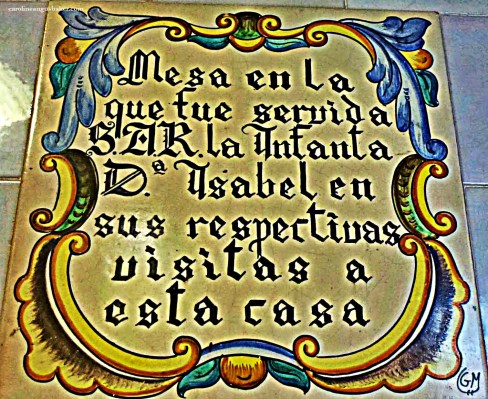 Mesa en la
que fue servida
S.A.R. la Ynfanta
D.ª Ysabel en
sus respectivas
visitas a
esta casa
GM